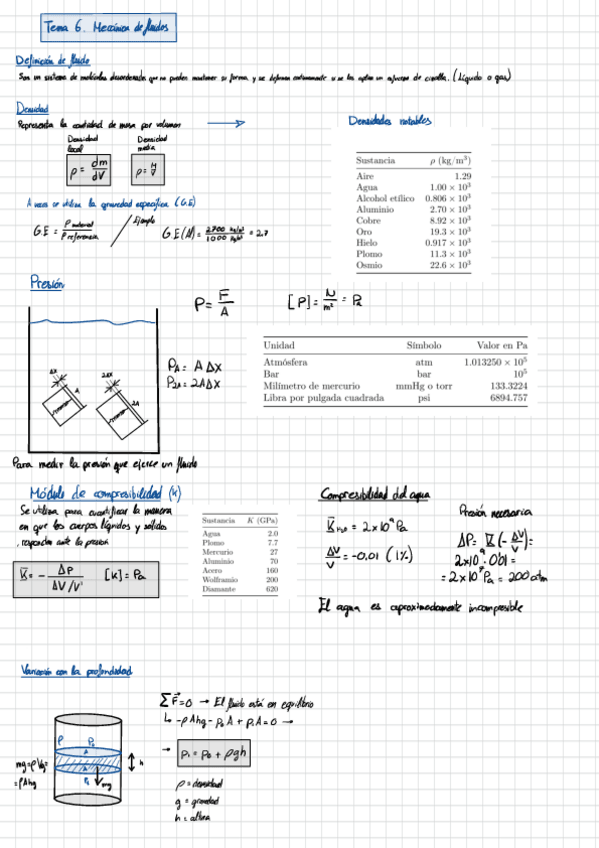 Tema 6. Mecánica de fluidos
Definición de fluido
Son un sistema de moléculas desordenadas que no pueden mantener su forma, y se deforman continuamente si se les aplica un esfuerzo de cizalla. (Líquido o gas)
Densidad
Representa la cantidad de masa por volumen →
Densidad local
ρ = dm/dV
Densidad media
ρ = M/V
A veces se utiliza la gravedad específica (G.E)
G.E = ρ material / ρ referencia
Ejemplo
G.E (Al) = 2700 kg/m³ / 1000 kg/m³ = 2.7
Densidades notables
Sustancia ρ (kg/m³)
Aire 1.29
Agua 1.00 × 10³
Alcohol etílico 0.806 × 10³
Aluminio 2.70 × 10³
Cobre 8.92 × 10³
Oro 19.3 × 10³
Hielo 0.917 × 10³
Plomo 11.3 × 10³
Osmio 22.6 × 10³
Presión
P = F/A
[P] = N/m² = Pa
ΔX
A
2ΔX
2A
P_A = A ΔX
P_2A = 2AΔX
Unidad Símbolo Valor en Pa
Atmósfera atm 1.013250 × 10⁵
Bar bar 10⁵
Milímetro de mercurio mmHg o torr 133.3224
Libra por pulgada cuadrada psi 6894.757
Para medir la presión que ejerce un fluido
Módulo de compresibilidad (K)
Se utiliza para cuantificar la manera
en que los cuerpos líquidos y sólidos
responden ante la presión
K = - ΔP / ΔV/V [K] = Pa
Sustancia K (GPa)
Agua 2.0
Plomo 7.7
Mercurio 27
Aluminio 70
Acero 160
Wolframio 200
Diamante 620
Compresibilidad del agua
K H₂O = 2 x 10⁹ Pa
ΔV/V = -0.01 (1%)
Presión necesaria
ΔP = K (- ΔV/V) =
2x10⁹ · 0.01 =
= 2 x 10⁷ Pa = 200 atm
El agua es aproximadamente incompresible
Variación con la profundidad
mg = ρVg =
= ρAhg
ρ
P₀
A
A
P₁
mg
h
∑F⃗ = 0 → El fluido está en equilibrio
↳ -ρAhg - p₀A + p₁A = 0 →
→ p₁ = p₀ + ρgh
ρ = densidad
g = gravedad
h = altura